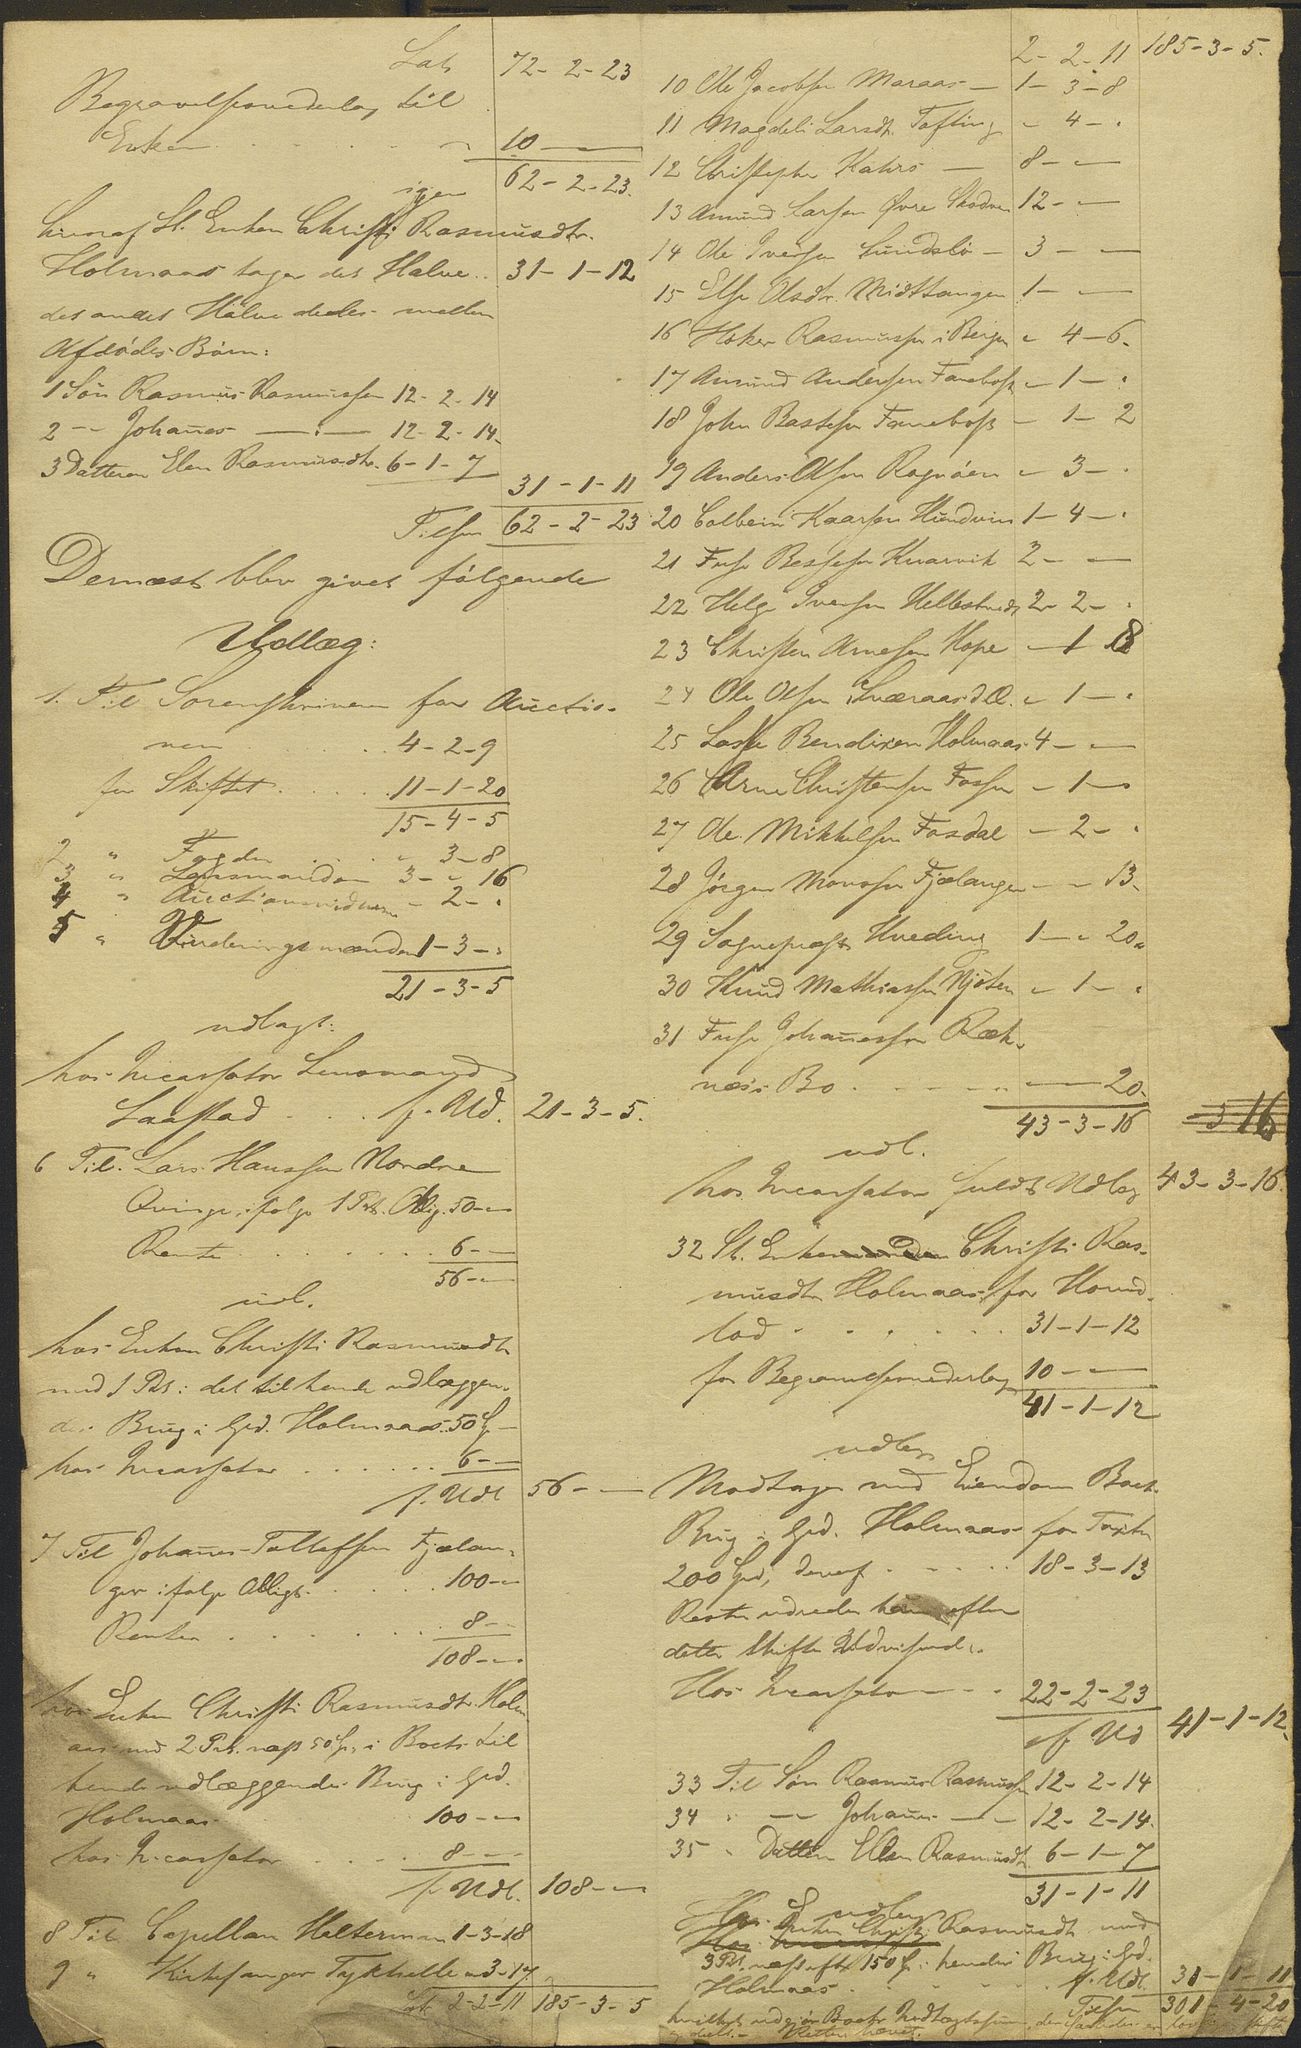 Lat. 72- 2- 23
Begravelsesvederlag til
Enken . . . . . " 10 - -
igjen 62- 2- 23.
hvoraf St. Enken Christi Rasmusdtr.
Holmaas tager det Halve.. 31- 1- 12
det andet Halve deeles mellem
Afdødes Børn:
1 Søn Rasmus Rasmussen 12- 2- 14
2 -- Johanes -- " -- 12- 2- 14.
3 Datteren Elen Rasmusdtr. 6- 1- 7
31 - 1- 11
Tilsm 62- 2- 23
Dernæst blev givet følgende
Udlæg:
1. Til Sorenskriveren for Auctio-
nen . . . . . 4- 2- 9
for Skiftet . . . . . 11- 1- 20
15- 4- 5
2 " Fogden . . . . " 3- 8
3 " Lensmanden 3- " 16
4 " Auctionsvidnerne - 2- "
5 " Vurderingsmændene 1- 3- "
21 - 3- 5
udlagt:
hos Incassator Lensmand
Laastad . . . f. Ud. 21- 3- 5.
6 Til Lars Hanssen Nordre
Qvinge ifølge 1 Prt. Oblig. 50 - "
Rente . . . . . . . 6 - -
56 - "
udl.
hos Enken Christi Rasmusdtr
med 1 Prt. i det til hende udlæggen-
de Brug i Grd. Holmaas.. 50 Sp -
hos Incassator . . . . . . 6 - -
f. Udl 56 - -
7 Til Johanes Tollefsen Fjælan-
ger ifølge Obligt. . . . . 100 - "
Renter . . . . . . . 8 - -
108 - "
hos Enken Christi Rasmusdtr. Holm
aas med 2 Prt. næst 50 Sp, i Boets til
hende udlæggende Brug i Grd.
Holmaas 100 - "
hos Incassator . . . . 8 - -
f. Udl. 108 - "
8 Til Capellan Halterman 1- 3- 18
9 " Kirkesanger Tykhelle " 3- 17
Lat. 2- 2- 11 185- 3- 5
2- 2- 11 185- 3- 5.
10 Ole Jacobsen Maraas - 1- 3- 8
11 Magdeli Larsdtr. Tofting - 4- "
12 Christopher Kahrs - 8 - -
13 Amund Larsen Øvre Skodven 12 - -
14 Ole Iversen Lundslø - 3 - -
15 Else Olsdtr. Midttangen 1 - -
16 Høker Rasmussen i Bergen " 4- 6.
17 Amund Andersen Fanebost - 1- "
18 John Bastesen Fannebost - 1- 2
19 Anders Olsen Rognøen " 3- "
20 Colbein Kaarsen Hundvin 1- 4- "
21 Furse Bessesen Knarvik 2 - -
22 Helge Iversen Hellestvedt 2- 2- "
23 Christen Arnesen Hope - 1 18
24 Ole Olsen Sværaas d.Æ. " 1- "
25 Lasse Bendixen Holmaas 4 - -
26 Arne Christensen Fosse - 1 - "
27 Ole Mikkelsen Fosdal - 2- "
28 Jørgen Monssen Fjælanger - " 13.
29 Sognepræst Hveding 1 - " 20
30 Knud Mathiassen Njøten " 1- "
31 Furse Johanessen Ræk-
næs's Bo . . . . . . - 20.
43- 3- 16
udl.
hos Incassator fuldt Udlæg 43- 3- 16
32 St. Enken Christi Ras-
musdtr Holmaas for Hoved-
lod . . . . . . 31- 1- 12
for Begravelsesvederlag 10 - -
41- 1- 12
udlæg
Modtager med Eiendom Boets
Brug i Grd. Holmaas for Taxten
200 Spd, deraf . . . . . 18- 3- 13
Resten udreder hun efter
dette Skiftes Udvisende.
Hos Incassator - - - 22- 2- 23
f. Ud 41- 1- 12
33 Til Søn Rasmus Rasmussen 12- 2- 14
34 " -- Johanes -- " 12- 2- 14.
35 " Datteren Elen Rasmusdtr 6- 1- 7
31- 1- 11
udlæg
Hos Enken Christi Rasmusdtr med
3 Prt. næst efter 150 Sp. i hendes Brug i Grd.
Holmaas . . . f. Udl. 31- 1- 11
Tilsm 301- 4- 20